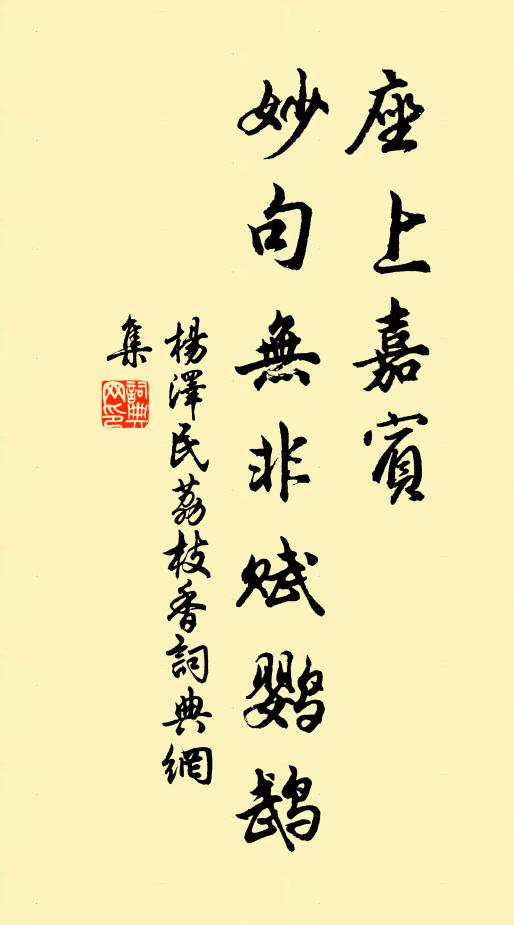 座上嘉賓
妙句無非赋鹦鹉
楊澤民荔枝香詞典網
集
詞典
网印